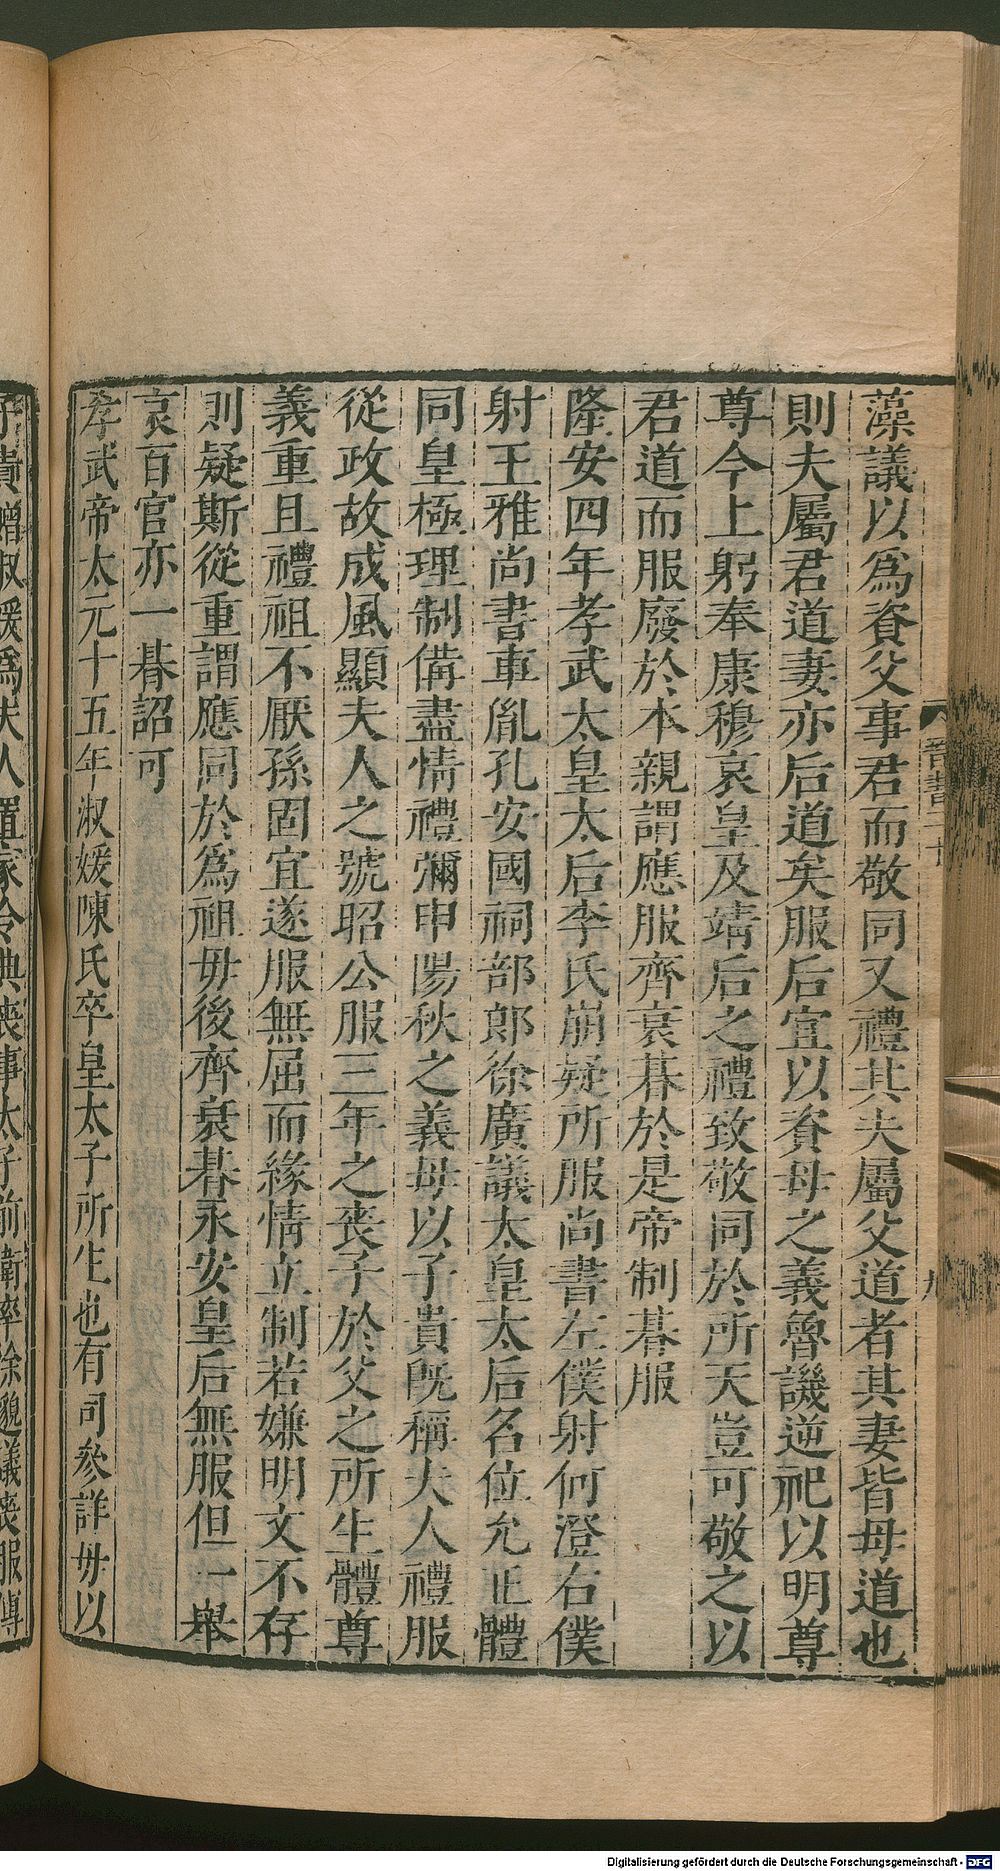 藻議以爲資父事君而敬同又禮其夫屬父道者其妻皆母道也
則夫屬君道妻亦后道矣服后宜以資母之義魯譏逆祀以明尊
尊今上躬奉康穆哀皇及靖后之禮致敬同於所天豈可敬之以
君道而服廢於本親謂應服齊衰朞於是帝制朞服
隆安四年孝武太皇太后李氏崩疑所服尚書左僕射何澄右僕
射王雅尚書車胤孔安國祠部郎徐廣議太皇太后名位允正體
同皇極理制備盡情禮彌申陽秋之義母以子貴旣稱夫人禮服
從政故成風顯夫人之號昭公服三年之喪子於父之所生體尊
義重且禮祖不厭孫固宜遂服無屈而緣情立制若嫌明文不存
則疑斯從重謂應同於爲祖毋後齊衰朞永安皇后無服但一舉
哀百官亦一朞詔可
孝武帝太元十五年淑媛陳氏卒皇太子所生也有司參詳毋以
子貴贈淑媛爲夫人置家令典喪事太子前衛率徐邈議喪服傳
晉書二十
九
Digitalisierung gefördert durch die Deutsche Forschungsgemeinschaft - DFG